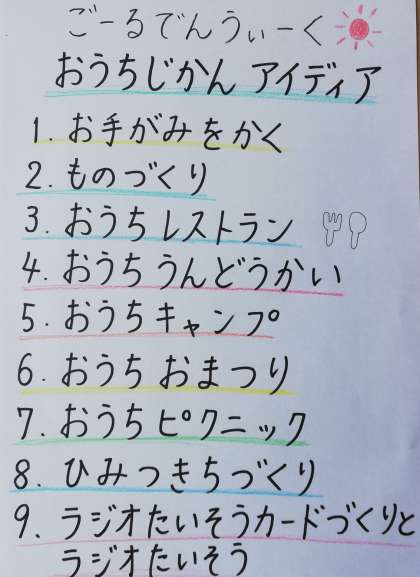 ごーるでんうぃーく
おうちじかん アイディア
1. お手がみをかく
2. ものづくり
3. おうちレストラン
4. おうちうんどうかい
5. おうちキャンプ
6. おうちおまつり
7. おうちピクニック
8. ひみつきちづくり
9. ラジオたいそうカードづくりと
ラジオたいそう